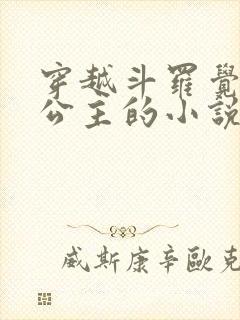 穿越斗羅覺
公主的小説
威斯康辛歐克